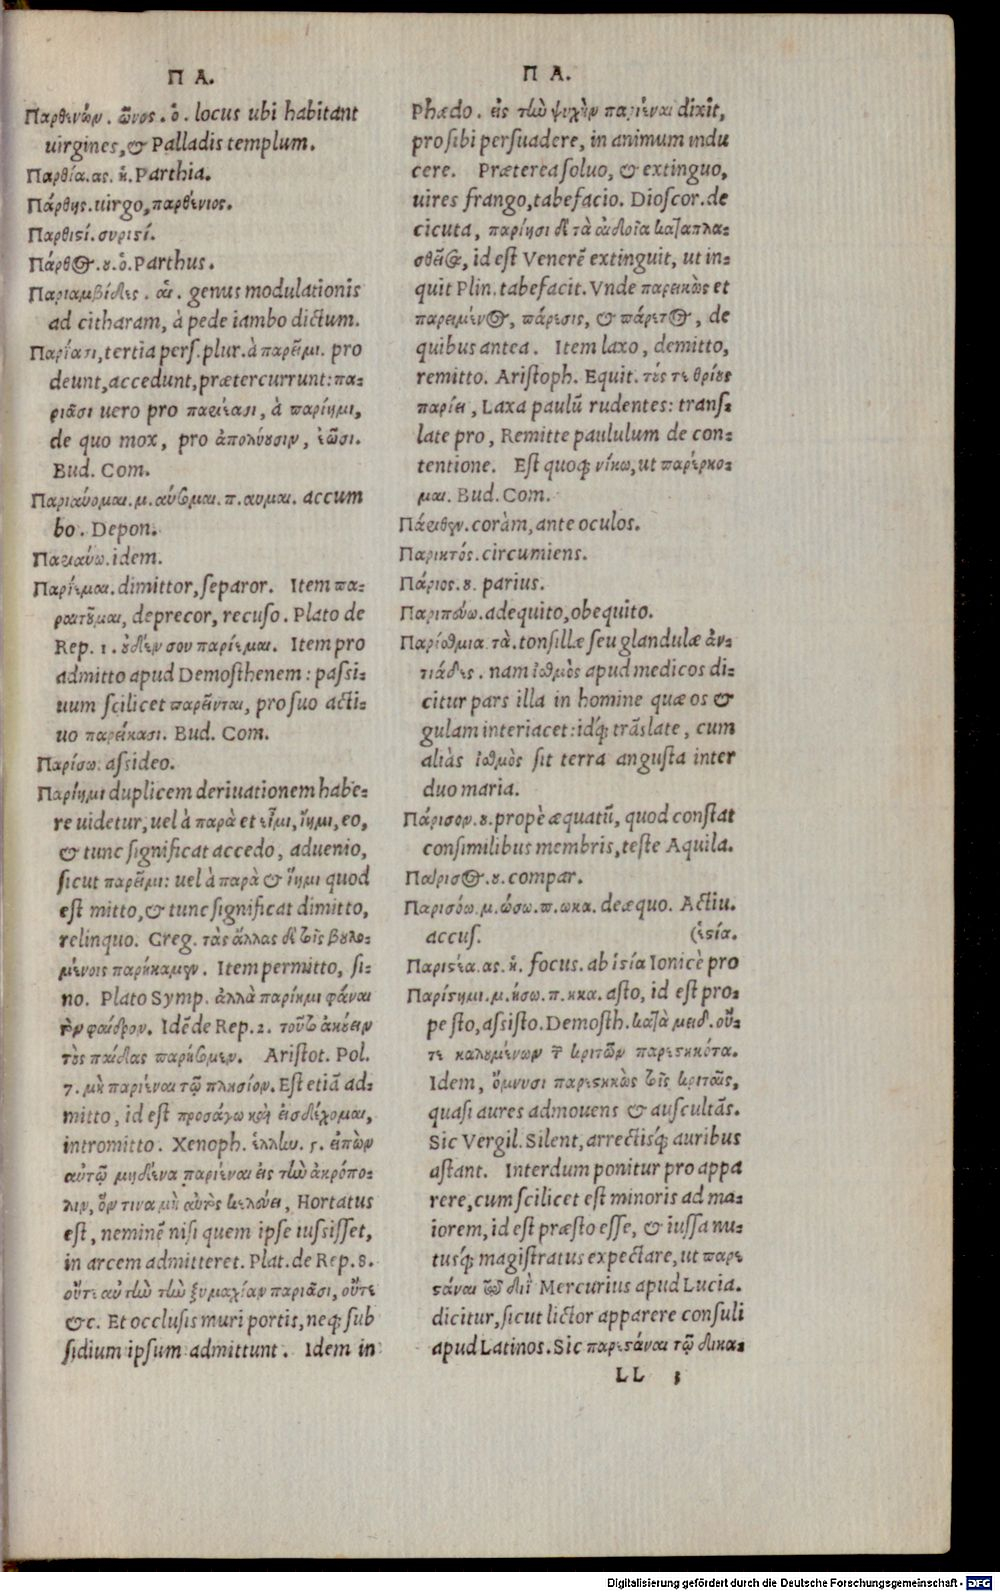 Π Α.
Παρθενών. ῶνος. ὁ. locus ubi habitant
uirgines, & Palladis templum.
Παρθία. ας. ἡ. Parthia.
Πάρθης. uirgo, παρθένιος.
Παρθιστί. συριστί.
Πάρθος. ου. ὁ. Parthus.
Παριαμβίδες. αἱ. genus modulationis
ad citharam, à pede iambo dictum.
Παρίασι, tertia pers. plur. à πάρειμι. pro
deunt, accedunt, prætercurrunt: πα-
ριᾶσι uero pro παριέασι, à παρίημι,
de quo mox, pro ἀπολύουσιν, ἐῶσι.
Bud. Com.
Παριαύομαι. μ. αύσομαι. π. αυμαι. accum
bo. Depon.
Παριαύω. idem.
Παρίεμαι. dimittor, separor. Item πα-
ραιτοῦμαι, deprecor, recuso. Plato de
Rep. 1. οὐδέν σου παρίεμαι. Item pro
admitto apud Demosthenem: passi-
uum scilicet παρεῖνται, pro suo acti-
uo παρείκασι. Bud. Com.
Παρίσω. assideo.
Παρίημι duplicem deriuationem habe-
re uidetur, uel à παρὰ et εἶμι, ἴημι, eo,
& tunc significat accedo, aduenio,
sicut πάρειμι: uel à παρὰ & ἵημι quod
est mitto, & tunc significat dimitto,
relinquo. Greg. τὰς ἄλλας δὲ τοῖς βουλο-
μένοις παρήκαμεν. Item permitto, si-
no. Plato Symp. ἀλλὰ παρίημι φάναι
τὸν φαῖδρον. Idẽ de Rep. 2. τοῦτο ἀκούειν
τοὺς παῖδας παρήσομεν. Aristot. Pol.
7. μὴ παριέναι τῷ πλησίον. Est etiã ad-
mitto, id est προσάγω καὶ εἰσδέχομαι,
intromitto. Xenoph. ἑλλην. 5. εἰπὼν
αὐτῷ μηδένα παριέναι εἰς τὴν ἀκρόπο-
λιν, ὅν τινα μὴ αὐτὸς κελεύει, Hortatus
est, neminẽ nisi quem ipse iussisset,
in arcem admitteret. Plat. de Rep. 8.
οὔτε αὖ τὴν τὴν ξυμμαχίαν παριᾶσι, οὔτε
&c. Et occlusis muri portis, neq; sub
sidium ipsum admittunt. Idem in
Π Α.
Phædo. εἰς τὴν ψυχὴν παριέναι dixit,
pro sibi persuadere, in animum indu
cere. Præterea soluo, & extinguo,
uires frango, tabefacio. Dioscor. de
cicuta, παρίησι δὲ τὰ αἰδοῖα καταπλα-
σθεῖσα, id est Venerẽ extinguit, ut in-
quit Plin. tabefacit. Vnde παρεικὼς et
παρειμένος, πάρεσις, & πάρετος, de
quibus antea. Item laxo, demitto,
remitto. Aristoph. Equit. τούς τε θρίους
παρίει, Laxa paulũ rudentes: trans-
late pro, Remitte paululum de con-
tentione. Est quoq; νίκω, ut παρέρχο-
μαι. Bud. Com.
Πάριθεν. coràm, ante oculos.
Παρικτός. circumiens.
Πάριος. ου. parius.
Παριππεύω. adequito, obequito.
Παρίσθμια τὰ. tonsillæ seu glandulæ ἀν-
τιάδες. nam ἰσθμὸς apud medicos di-
citur pars illa in homine quæ os &
gulam interiacet: idq́; trãslate, cum
aliàs ἰσθμὸς sit terra angusta inter
duo maria.
Πάρισον. ου. propè æquatũ, quod constat
consimilibus membris, teste Aquila.
Πάρισος. ου. compar.
Παρισόω. μ. ώσω. π. ωκα. deæquo. Actiu.
accus. (ἑστία.
Παριστία. ας. ἡ. focus. ab ἱστία Ionicè pro
Παρίστημι. μ. ήσω. π. ηκα. asto, id est pro-
pe sto, assisto. Demosth. κατὰ μειδ. οὔ-
τε καλουμένων τῶν κριτῶν παρεστηκότα.
Idem, ὄμνυσι παρεστηκὼς τοῖς κριταῖς,
quasi aures admouens & auscultãs.
Sic Vergil. Silent, arrectisq́; auribus
astant. Interdum ponitur pro appa
rere, cum scilicet est minoris ad ma-
iorem, id est præsto esse, & iussa nu-
tusq́; magistratus expectare, ut παρε
στάναι τῷ διῒ Mercurius apud Lucia.
dicitur, sicut lictor apparere consuli
apud Latinos. Sic παρεστάναι τῷ δικα-
LL 3
Digitalisierung gefördert durch die Deutsche Forschungsgemeinschaft - DFG